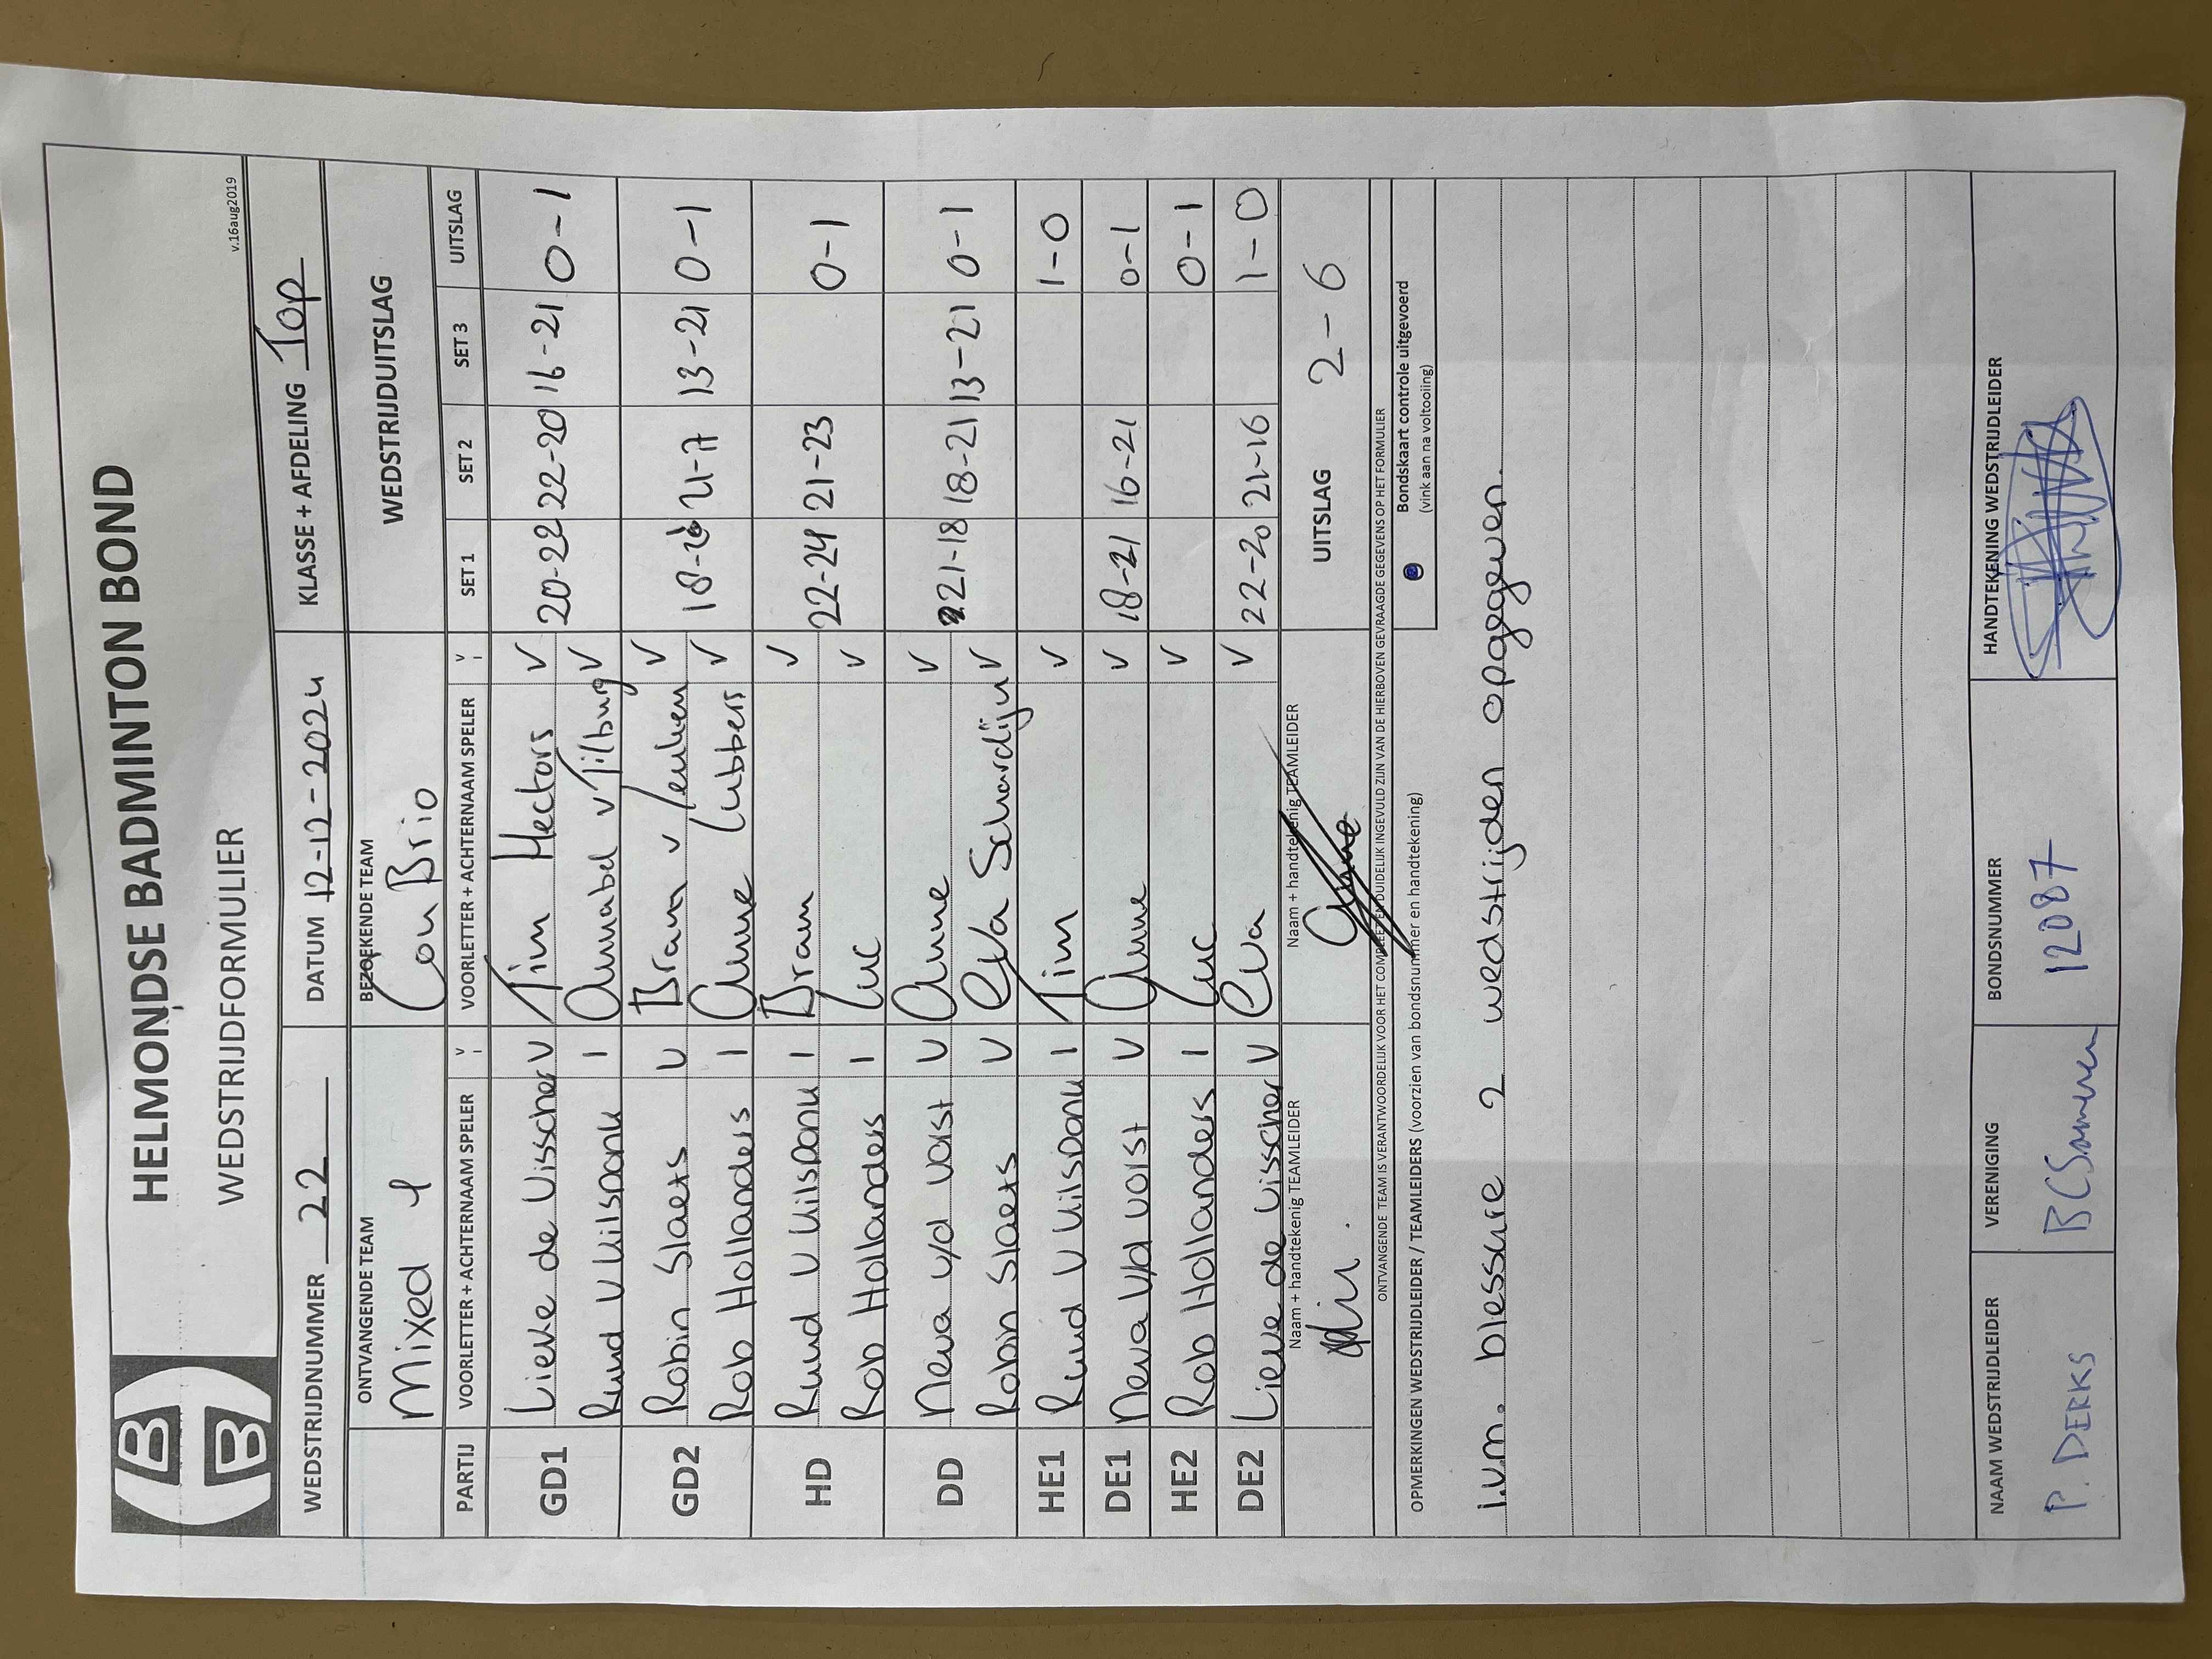 B
B
HELMONDSE BADMINTON BOND
WEDSTRIJDFORMULIER
v.16aug2019
WEDSTRIJDNUMMER 22 DATUM 12-12-2024 KLASSE + AFDELING Top
ONTVANGENDE TEAM BEZOEKENDE TEAM WEDSTRIJDUITSLAG
Mixed 1 Con Brio
PARTIJ VOORLETTER + ACHTERNAAM SPELER V VOORLETTER + ACHTERNAAM SPELER V SET 1 SET 2 SET 3 UITSLAG
GD1 Lieke de Visscher V Tim Hectors V 20-22 22-20 16-21 0-1
Ruud V Uilsponu I Annabel v Tilburg V
GD2 Robin Slaets V Bram v V 18-21 21-17 13-21 0-1
Rob Hollanders I Anne Lubbers V
HD Ruud V Uilsponu I Bram V 22-24 21-23 0-1
Rob Hollanders I Luc V
DD Neva v/d Vorst V Anne V 21-18 18-21 13-21 0-1
Robin Slaets V Eva Schardijn V
HE1 Ruud V Uilsponu I Tim V 1-0
DE1 Neva v/d Vorst V Anne V 18-21 16-21 0-1
HE2 Rob Hollanders I Luc V 0-1
DE2 Lieve de Visscher V Eva V 22-20 21-16 1-0
Naam + handtekenig TEAMLEIDER Naam + handtekenig TEAMLEIDER UITSLAG 2-6
Anne
ONTVANGENDE TEAM IS VERANTWOORDELIJK VOOR HET COMPLEET EN DUIDELIJK INGEVULD ZIJN VAN DE HIERBOVEN GEVRAAGDE GEGEVENS OP HET FORMULIER
OPMERKINGEN WEDSTRIJDLEIDER / TEAMLEIDERS (voorzien van bondsnummer en handtekening)
Bondskaart controle uitgevoerd
(vink aan na voltooiing)
i.v.m. blessure 2 wedstrijden opgegeven.
NAAM WEDSTRIJDLEIDER VERENIGING BONDSNUMMER HANDTEKENING WEDSTRIJDLEIDER
P. DERKS BC Someren 12087